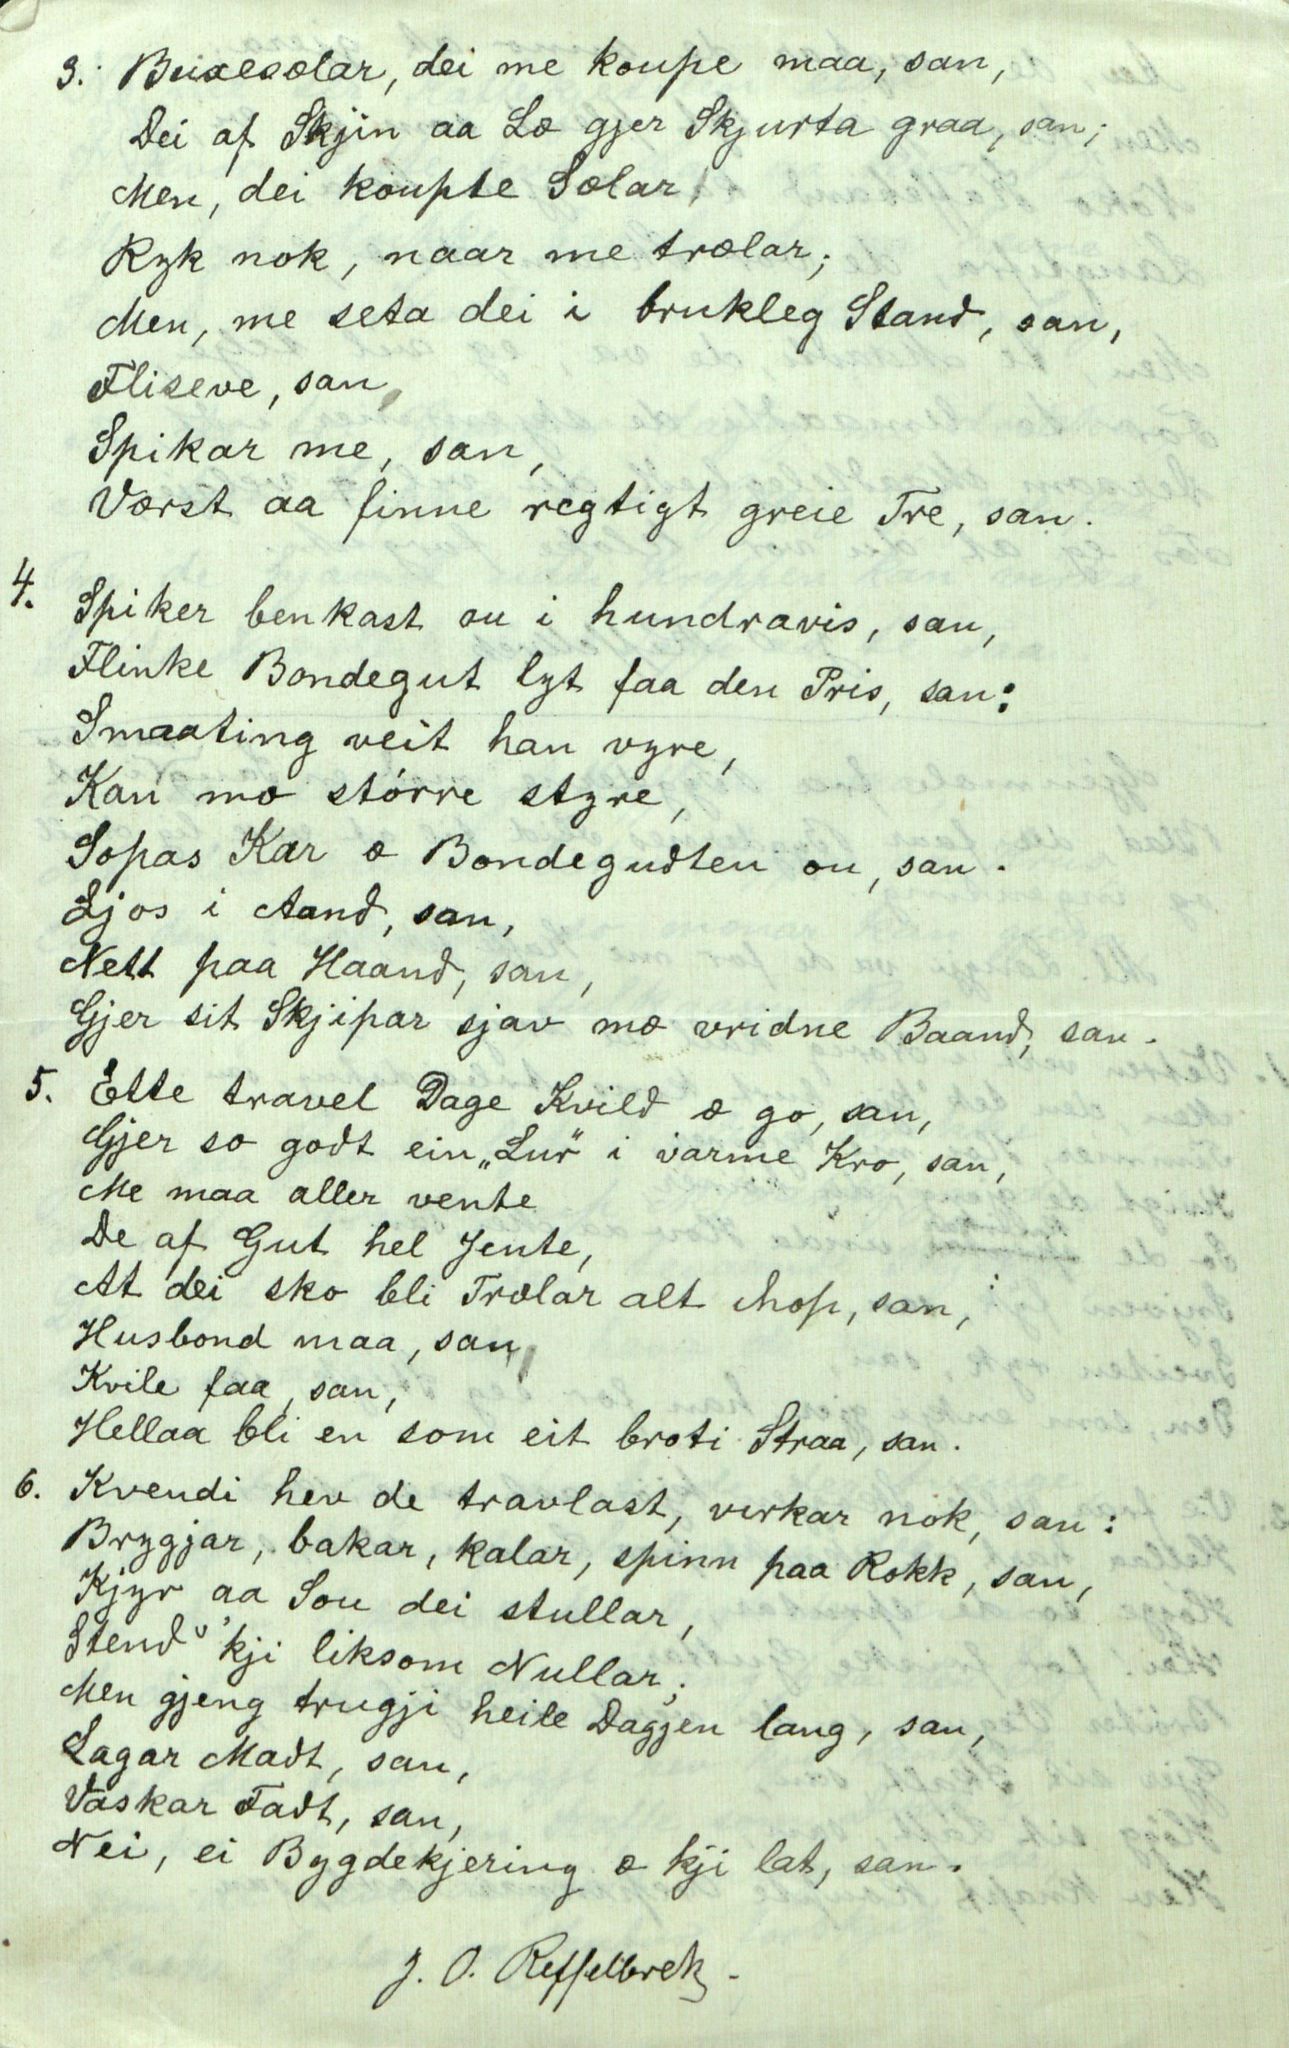 3. Buxesælar, dei me koupe maa, san,
Dei af Skjin aa Læ gjer Skjurta graa, san;
Men, dei koupte Sælar,
Ryk nok, naar me trælar;
Men, me seta dei i brukleg Stand, san,
Fliseve, san,
Spikar me, san,
Værst aa finne regtigt greie Tre, san.
4. Spiker benkast ou i hundravis, san,
Flinke Bondegut lyt faa den Pris, san:
Smaating veit han vyre,
Kan mæ større styre,
Sopas Kar æ Bondegudten ou, san.
Ljos i Aand, san,
Nett paa Haand, san,
Gjer sit Skjipar sjav mæ vridne Baand, san.
5. Ette travel Dage Kvild æ go, san,
Gjer so godt ein „Lur" i varme Kro, san,
Me maa aller vente
De af Gut hel Jente,
At dei sko bli Trælar alt ihop, san,
Husbond maa, san,
Kvile faa, san,
Hellaa bli en som eit broti Straa, san.
6. Kvendi hev de travlast, virkar nok, san:
Brygjar, bakar, kalar, spinn paa Rokk, san,
Kjyr aa Sou dei stullar,
Stend 'kji liksom Nullar;
Men gjeng trugji heile Dagjen lang, san,
Lagar Madt, san,
Vaskar Fadt, san,
Nei, ei Bygdekjering æ kji lat, san.
J. O. Reffelbrek.